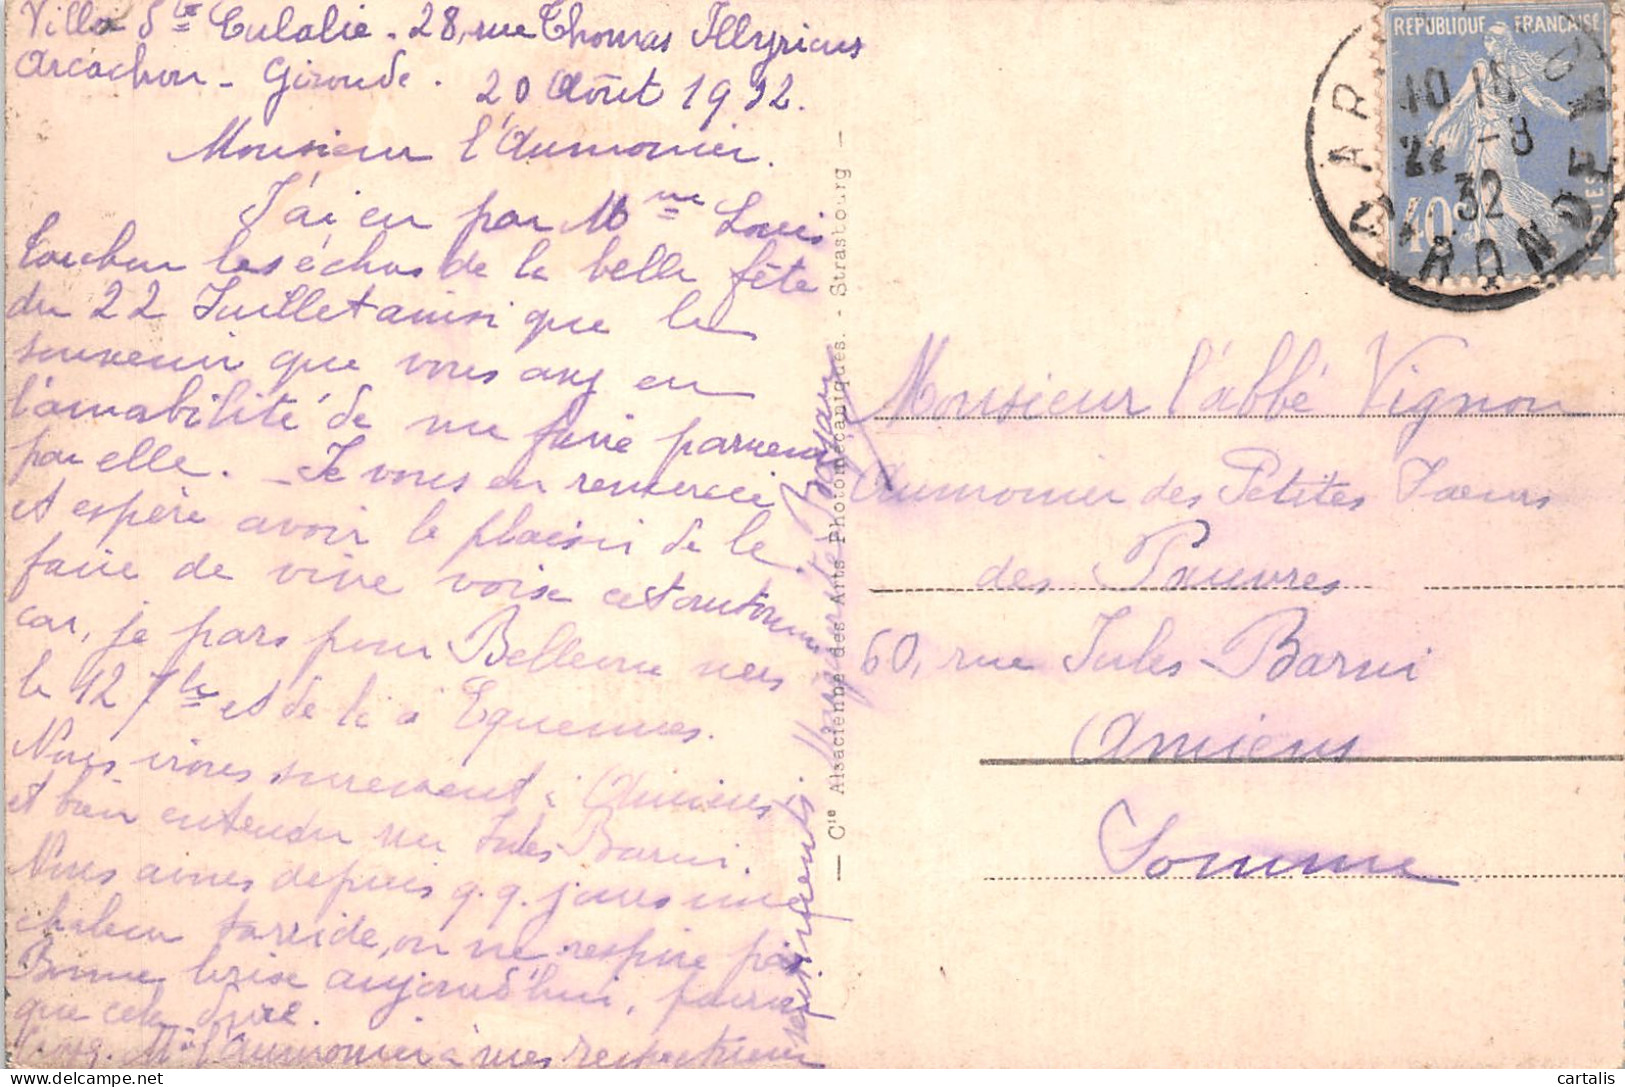 Villa Ste Eulalie - 28, rue Thomas Illyricus
Arcachon - Gironde. 20 Août 1932.
Monsieur l'Aumonier.
J'ai eu par Mme Louis
les échos de la belle fête
du 22 Juillet ainsi que le
souvenir que vous avez eu
l'amabilité de me faire parvenir
par elle. - Je vous en remercie
et espère avoir le plaisir de le
faire de vive voix cet automne
car, je pars pour Bellevue vers
le 12 7bre et de là à Equennes.
Nous irons surement à Amiens
et bien entendu rue Jules Barni.
Nous avons depuis q.q. jours une
chaleur torride, on ne respire pas.
Bonne brise aujourd'hui, pourvu
que cela dure.
Mr l'Aumonier à mes respectueux
sentiments. Marguerite
REPUBLIQUE FRANÇAISE
40
POSTES
GARE
10 10
22 -8
32
GIRONDE
— Cie Alsacienne des Arts Photomécaniques. - Strasbourg —
Monsieur l'abbé Vignon
Aumonier des Petites Soeurs
des Pauvres
60, rue Jules Barni
Amiens
Somme
cartalis